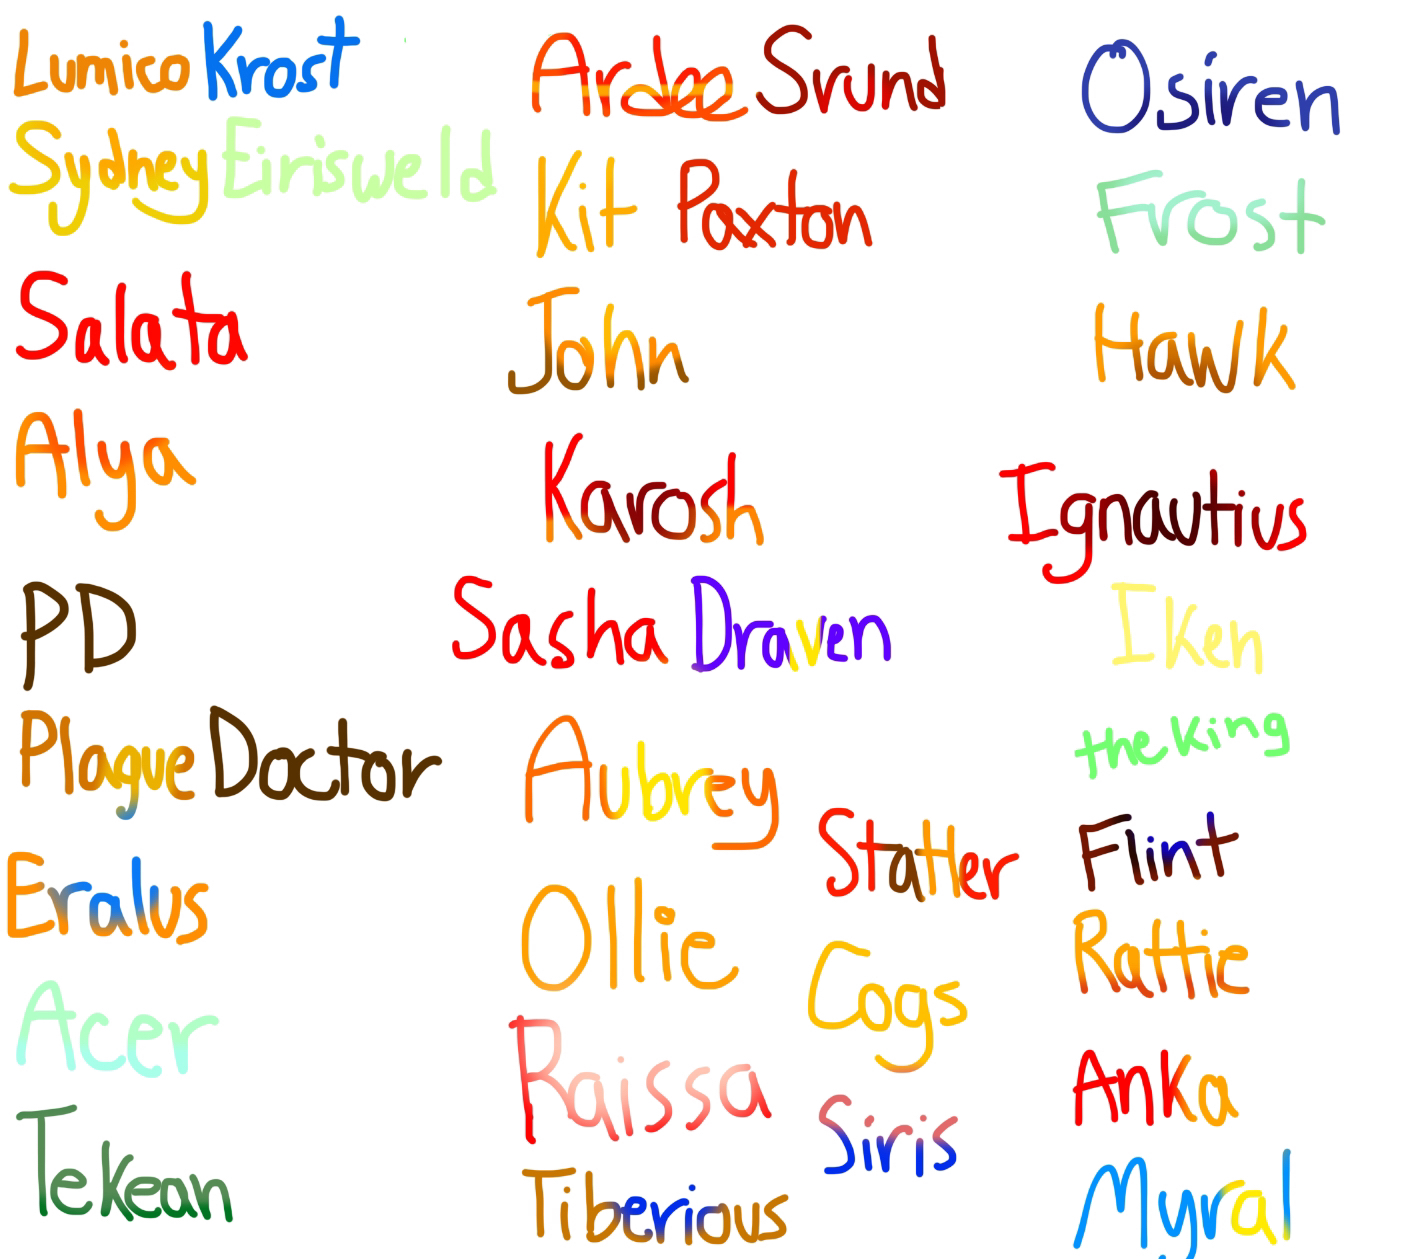 Lumico Krost
Sydney Eirisweld
Salata
Alya
PD
Plague Doctor
Eralus
Acer
Tekean
Ardee Srund
Kit Paxton
John
Karosh
Sasha Draven
Aubrey
Ollie
Raissa
Tiberious
Statler
Cogs
Siris
Osiren
Frost
Hawk
Ignautius
Iken
the king
Flint
Rattie
Anka
Myral